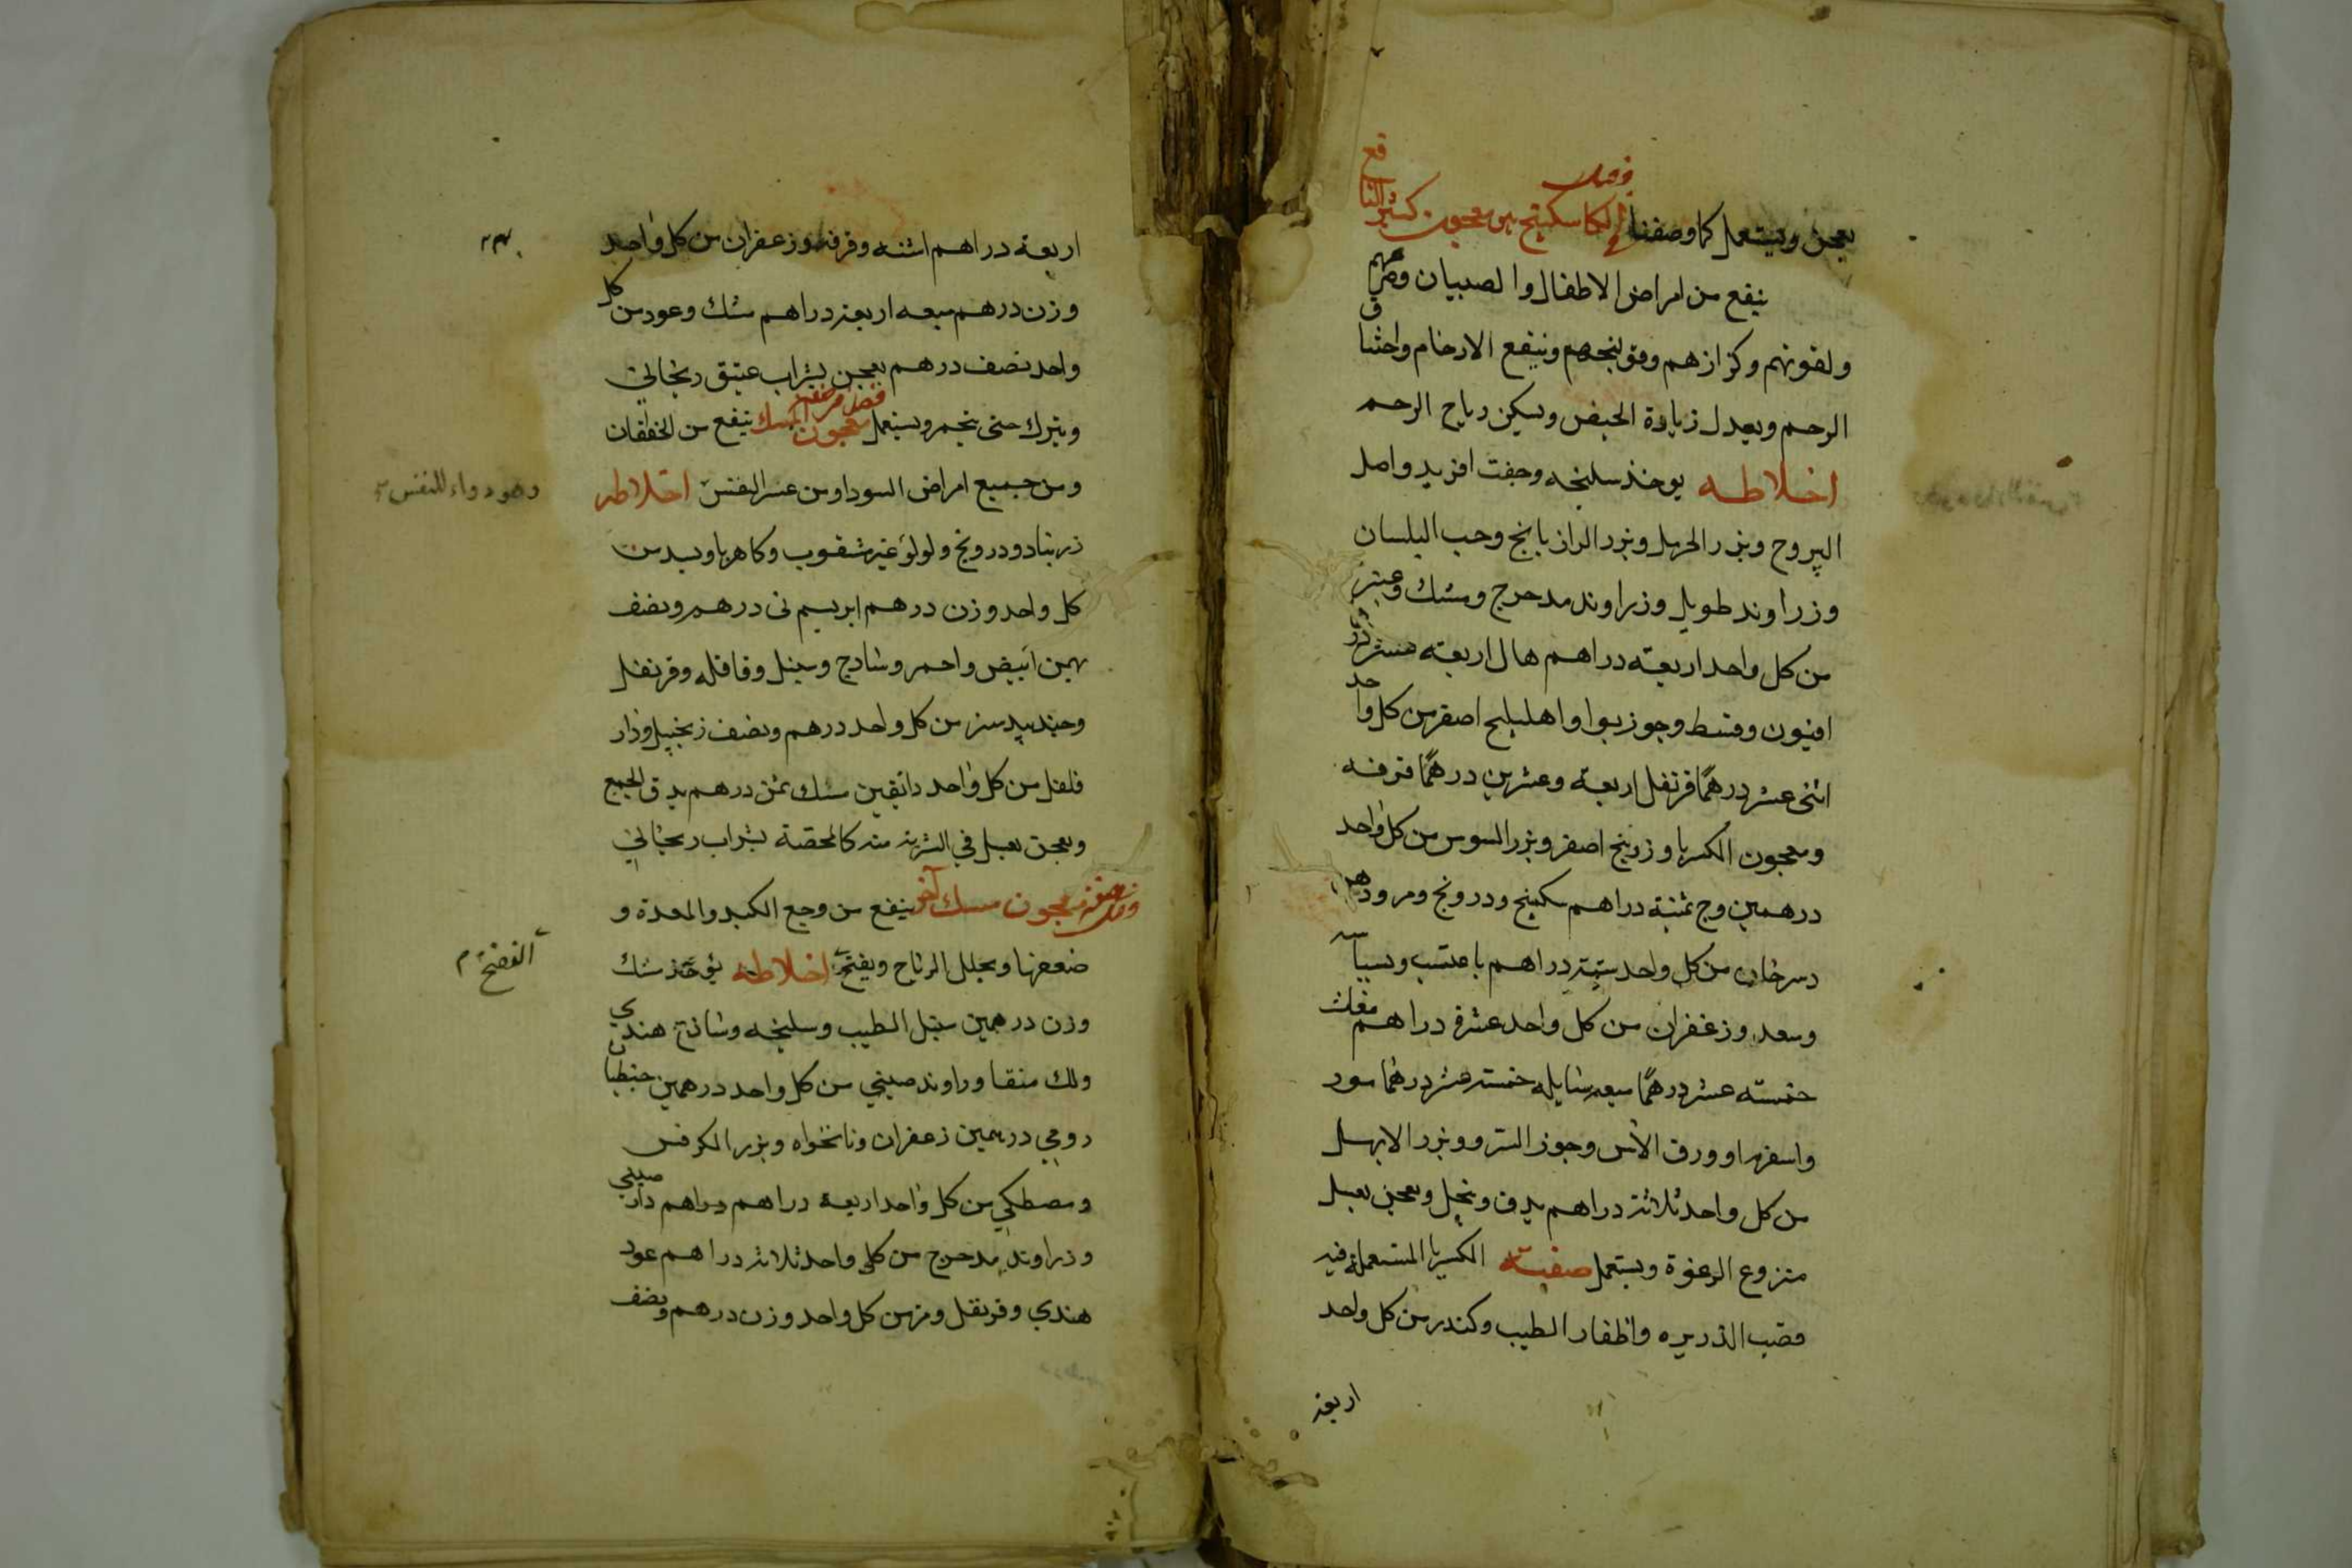 يعجن ويستعمل كما وصفنا فصل في الكاسكبينج هو معجون كثير النافع
ينفع من امراض الاطفال والصبيان وصرعهم
ولقوتهم وكزازهم وقولنجهم وينفع الارحام واختناق
الرحم ويعدل زيادة الحيض ويسكن رياح الرحم
اخلاطه يوخذ سليخه وجفت افريد واصل
اليبروح وبزر الحرمل وبزر الرازيانج وحب البلسان
وزراوند طويل وزراوند مدحرج ومسك وعنبر
من كل واحد اربعة دراهم هال اربعه عشر درهم
افيون وقسط وجوز بوا واهليلج اصفر من كل واحد
اثنى عشر درهمًا قرنفل اربعة وعشرين درهمًا قرفه
ومعجون الكسريا وزرنيخ اصفر وبزر السوس من كل واحد
درهمين وج ثمنية دراهم سكبينج ودرونج ومر
من كل واحد ستة دراهم
وسعد وزعفران من كل واحد عشرة دراهم مغاث
خمسته عشر درهمًا ميعه سايله خمسته عشر درهمًا مورد
واسفرم او ورق الآس وجوز السرو وبزر الابهل
من كل واحد ثلاثة دراهم يدق وينخل ويعجن بعسل
منزوع الرغوة ويستعمل صفة الكسريا المستعملة فيه
قصب الذريره واظفار الطيب وكندر من كل واحد
اربعة
اربعة دراهم اشنه وقرفه وزعفران من كل واحد
وزن درهم ميعه اربعة دراهم مسك وعود من كل
واحد نصف درهم يعجن بشراب عتيق ريحاني
ويترك حتى يختمر ويستعمل فصل في صفة معجون المسك ينفع من الخفقان
ومن جميع امراض السودا ومن عسر النفس اخلاطه
وهو دواء للنفس
زرنباد ودرونج ولولو غير مثقوب وكاهربا وبسد من
كل واحد وزن درهم ابريسم نى درهم ونصف
بهمن ابيض واحمر وساذج وسنبل وقاقله وقرنفل
وجندبيدستر من كل واحد درهم ونصف زنجبيل ودار
فلفل من كل واحد دانقين مسك ثمن درهم يدق الجميع
ويعجن بعسل في الشربة منه كالحمصة بشراب ريحاني
فصل في صفة معجون مسك آخر ينفع من وجع الكبد والمعدة و
ضعفها ويحلل الرياح ويفتح اخلاطه يؤخذ مسك
وزن درهمين سنبل الطيب وسليخه وساذج هندي
ولك منقا وراوند صيني من كل واحد درهمين جنطيانا
رومي درهمين زعفران ونانخواه وبزر الكرفس
ومصطكي من كل واحد اربعة دراهم دارصيني
وزراوند مدحرج من كل واحد ثلاثة دراهم عود
هندي وقرنفل ومر من كل واحد وزن درهم ونصف